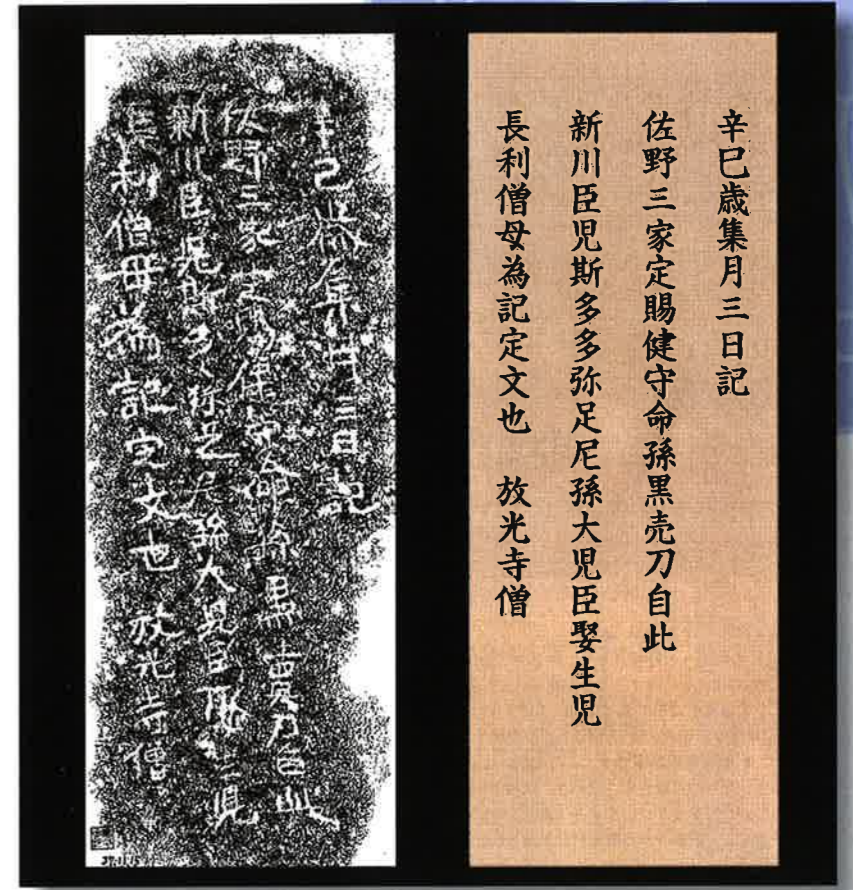 辛巳歳集月三日記
佐野三家定賜健守命孫黒売刀自此
新川臣児斯多多弥足尼孫大児臣娶生児
長利僧母為記定文也　放光寺僧
辛巳歳集月三日記
佐野三家定賜健守命孫黒売刀自此
新川臣児斯多々弥足尼孫大児臣娶生児
長利僧母為記定文也　放光寺僧